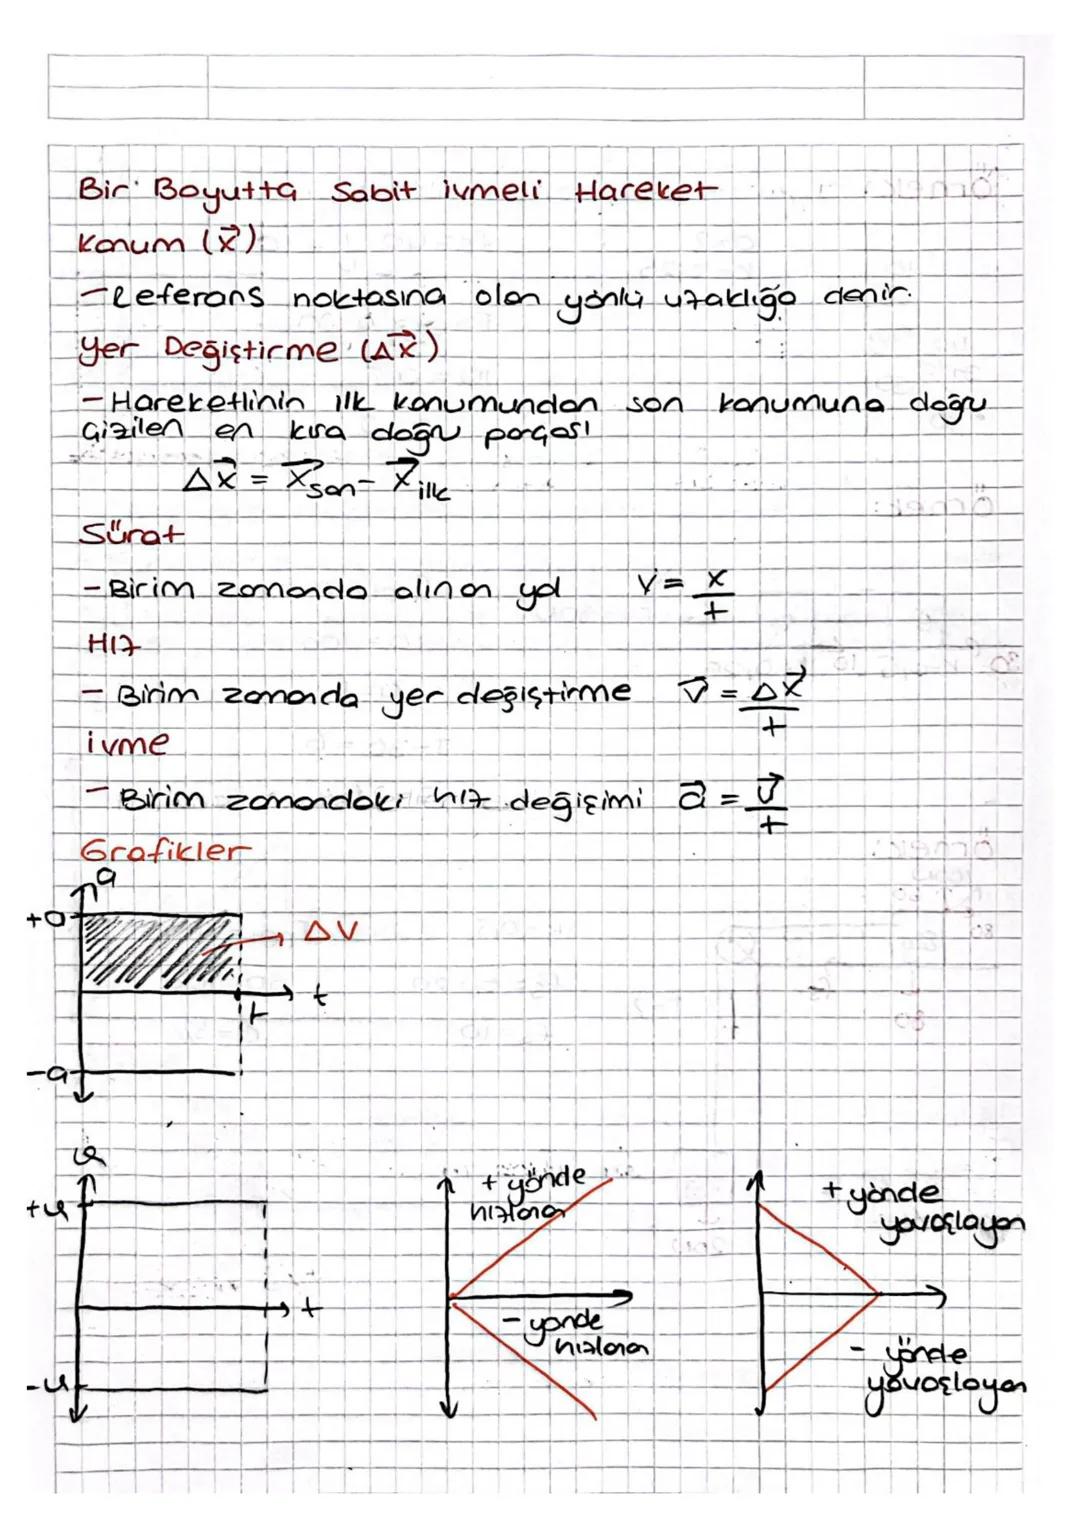 Bir Boyutta Sabit ivmeli Hareket
Konum (x⃗)
- Referans noktasına olan yönlü uzaklığa denir.
Yer Değiştirme (Δx⃗)
- Hareketlinin ilk konumundan son konumuna doğru
çizilen en kısa doğru parçası
Δx⃗ = x⃗son - x⃗ilk
Sürat
- Birim zamanda alınan yol V = x/t
Hız
- Birim zamanda yer değiştirme v⃗ = Δx⃗/t
ivme
- Birim zamandaki hız değişimi a⃗ = v⃗/t
Grafikler
a
+a
ΔV
t
t
-a
v
+v
t
-v
+ yönde
hızlanan
- yönde
hızlanan
+ yönde
yavaşlayan
- yönde
yavaşlayan